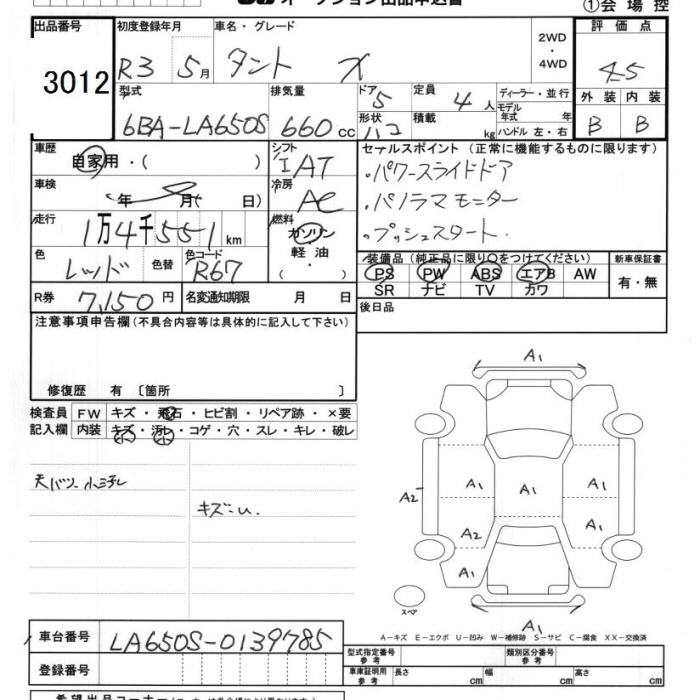 オークション出品申込書 ①会場控
出品番号 初度登録年月 車名・グレード 2WD・4WD 評価点
3012 R3 5月 タント X 4.5
型式 排気量 ドア 定員 ディーラー・並行 外装 内装
6BA-LA650S 660cc 5 4人 モデル年式 年式 B B
形状 積載 ハンドル 左・右
ハコ kg
車歴 シフト セールスポイント(正常に機能するものに限ります)
自家用・( ) IAT ・パワースライドドア
車検 冷房 ・パノラマモニター
年 月( 日) AC ・プッシュスタート.
走行 燃料
1万4千551km ガソリン・軽油・( )
色 色替 色コード 装備品(純正品に限り○をつけてください) 新車保証書
レッド R67 PS PW ABS エアB AW 有・無
SR ナビ TV カワ
R券 7,150円 名変通知期限 月 日 後日品
注意事項申告欄(不具合内容等は具体的に記入して下さい)
修復歴 有〔箇所 〕
検査員 FW キズ・飛石・ヒビ割・リペア跡・×要
記入欄 内装 キズ・汚レ・コゲ・穴・スレ・キレ・破レ
天バリ小こすれ
キズ
A1
A1 A1 A1
A2
A2 A1
A1
スペア
A1
A-キズ E-エクボ U-凹み W-補修跡 S-サビ C-腐食 XX-交換済
車台番号 LA650S-0139785
型式指定番号 参考 類別区分番号 参考
登録番号 車庫証明用 参考 長さ cm 幅 cm 高さ cm